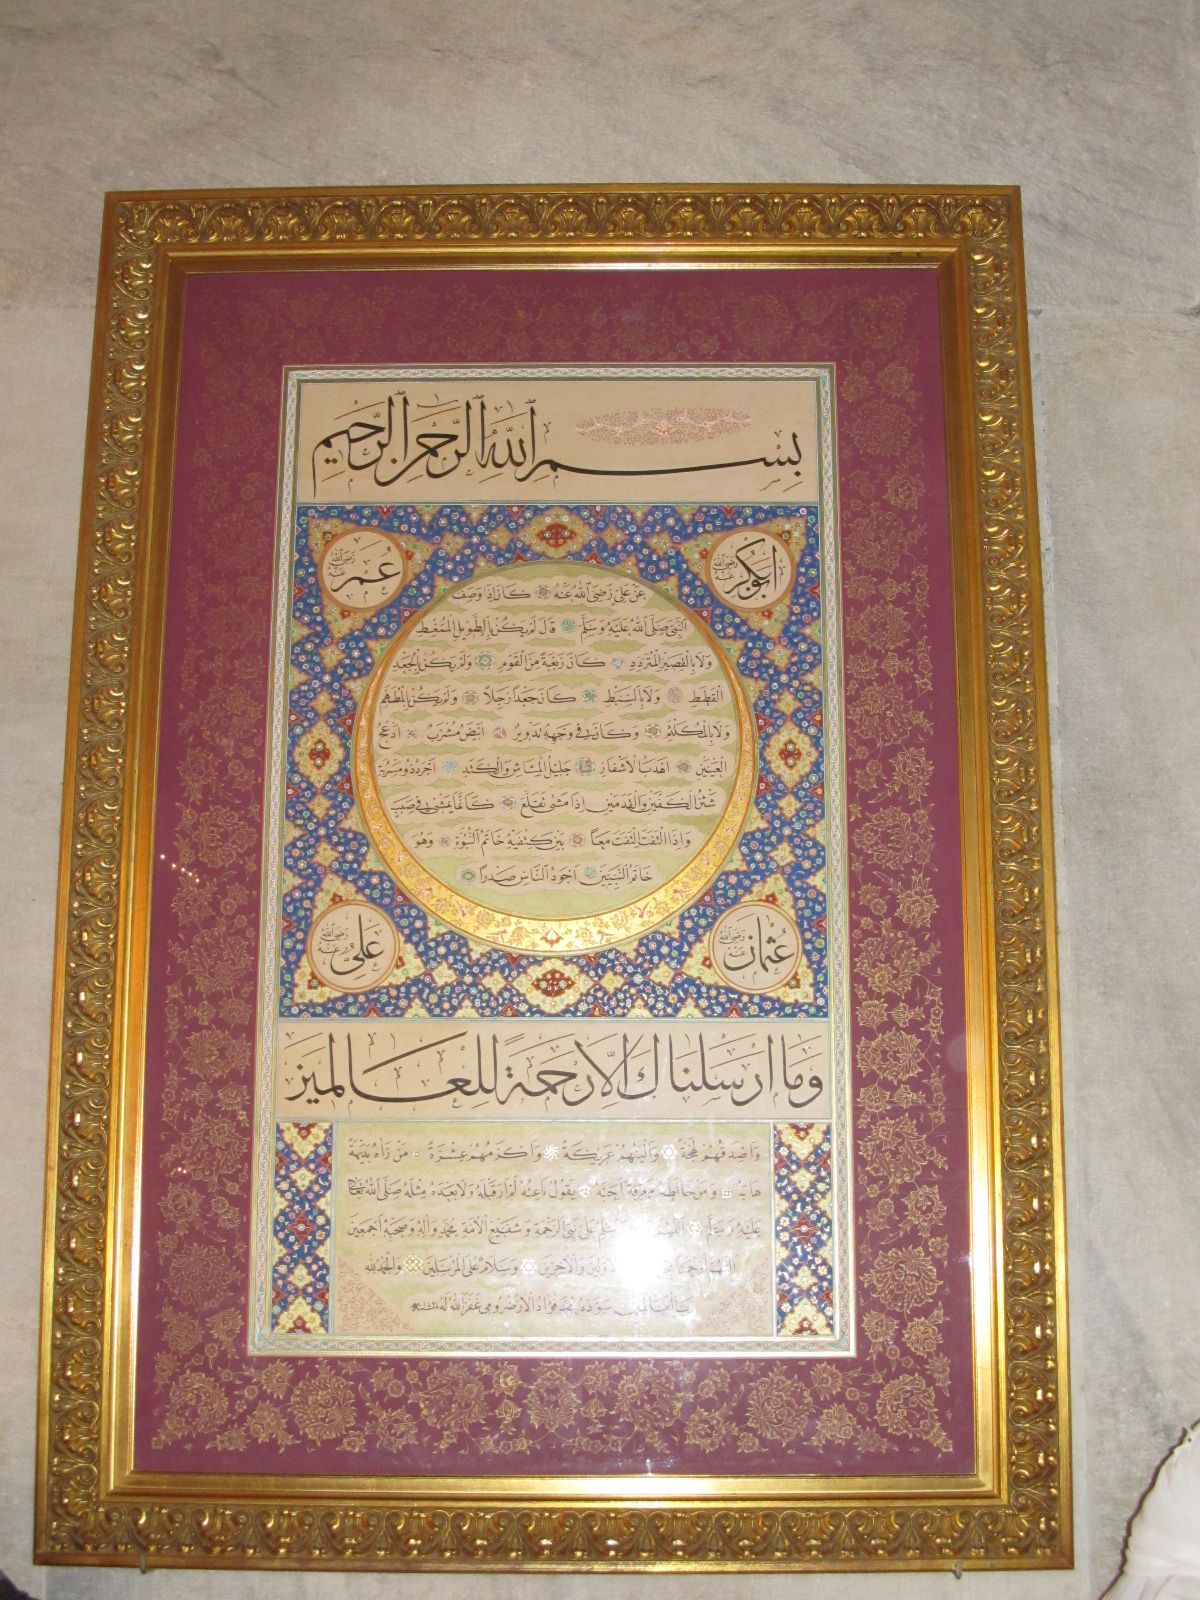 بِسْمِ اللهِ الرَّحْمٰنِ الرَّحِيمِ
ابوبكر رضى الله عنه
عمر رضى الله عنه
عَنْ عَلِيٍّ رَضِيَ اللهُ عَنْهُ كَانَ إِذَا وَصَفَ
النَّبِيَّ صَلَّى اللهُ عَلَيْهِ وَسَلَّمَ قَالَ لَمْ يَكُنْ بِالطَّوِيلِ الْمُمَغَّطِ
وَلَا بِالْقَصِيرِ الْمُتَرَدِّدِ كَانَ رَبْعَةً مِنَ الْقَوْمِ وَلَمْ يَكُنْ بِالْجَعْدِ
الْقَطَطِ وَلَا بِالسَّبْطِ كَانَ جَعْدًا رَجِلًا وَلَمْ يَكُنْ بِالْمُطَهَّمِ
وَلَا بِالْمُكَلْثَمِ وَكَانَ فِي وَجْهِهِ تَدْوِيرٌ أَبْيَضُ مُشْرَبٌ أَدْعَجُ
الْعَيْنَيْنِ أَهْدَبُ الْأَشْفَارِ جَلِيلُ الْمُشَاشِ وَالْكَتَدِ أَجْرَدُ ذُو مَسْرُبَةٍ
شَثْنُ الْكَفَّيْنِ وَالْقَدَمَيْنِ إِذَا مَشَى تَقَلَّعَ كَأَنَّمَا يَمْشِي فِي صَبَبٍ
وَإِذَا الْتَفَتَ الْتَفَتَ مَعًا بَيْنَ كَتِفَيْهِ خَاتَمُ النُّبُوَّةِ وَهُوَ
خَاتَمُ النَّبِيِّينَ أَجْوَدُ النَّاسِ صَدْرًا
عثمان رضى الله عنه
على رضى الله عنه
وَمَا أَرْسَلْنَاكَ إِلَّا رَحْمَةً لِلْعَالَمِينَ
وَأَصْدَقُهُمْ لَهْجَةً وَأَلْيَنُهُمْ عَرِيكَةً وَأَكْرَمُهُمْ عِشْرَةً مَنْ رَآهُ بَدِيهَةً
هَابَهُ وَمَنْ خَالَطَهُ مَعْرِفَةً أَحَبَّهُ يَقُولُ نَاعِتُهُ لَمْ أَرَ قَبْلَهُ وَلَا بَعْدَهُ مِثْلَهُ صَلَّى اللهُ تَعَالَى
عَلَيْهِ وَسَلَّمَ عَلَى نَبِيِّ الرَّحْمَةِ وَشَفِيعِ الْأُمَّةِ مُحَمَّدٍ وَآلِهِ وَصَحْبِهِ أَجْمَعِينَ
وَالْآخِرِينَ وَسَلَامٌ عَلَى الْمُرْسَلِينَ وَالْحَمْدُ لِلّٰهِ
سَوَّدَهُ مُحَمَّد فُؤَاد الْأَرْضَرُومِي غَفَرَ اللهُ لَهُ